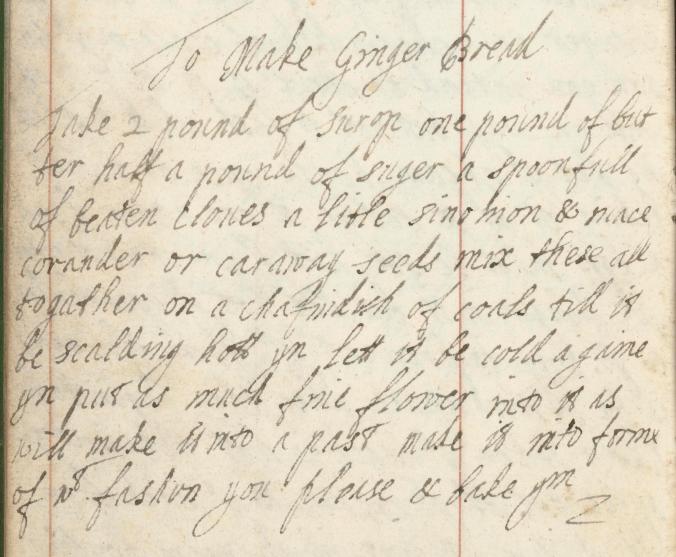 To Make Ginger Bread
Take 2 pound of surop one pound of but
ter half a pound of suger a spoonfull
of beaten Cloues a litle sinomon & mace
corander or caraway seeds mix these all
togather on a chafindish of coals till it
be scalding hott yn lett it be cold againe
yn put as much fine flower into it as
will make it into a past make it into forme
of wt fashon you please & bake ym